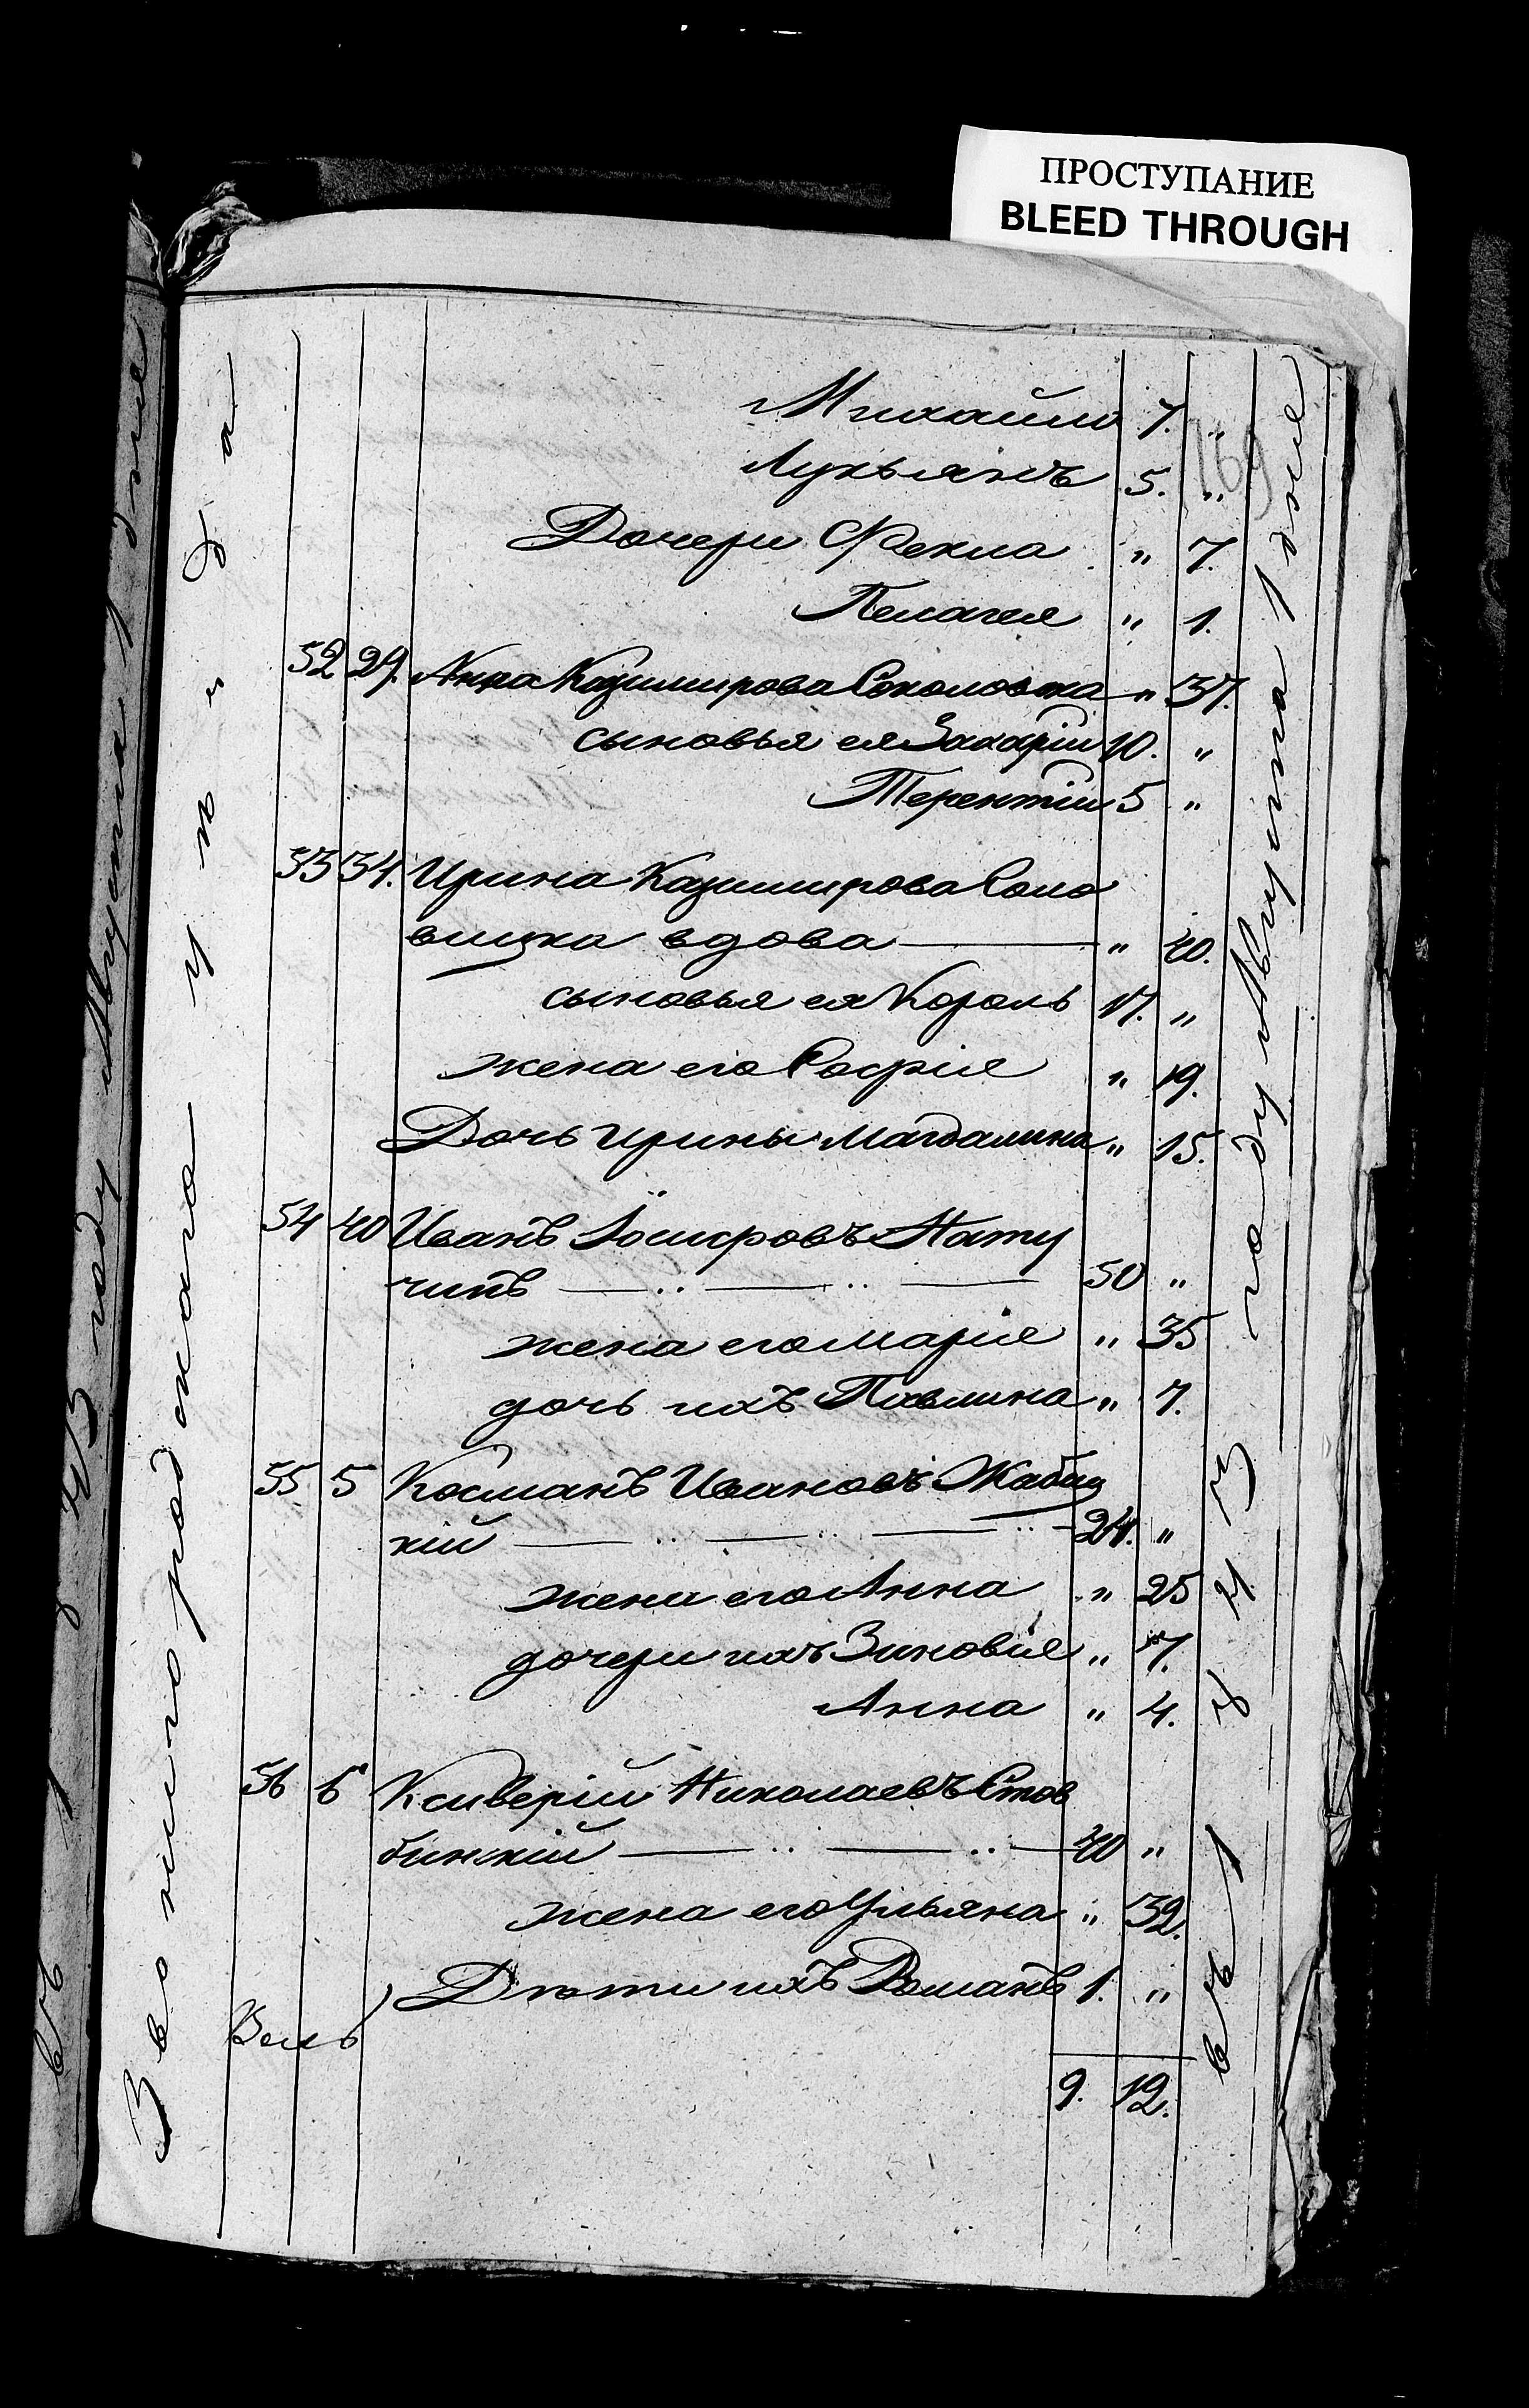 ПРОСТУПАНИЕ
BLEED THROUGH
169
Михайло 7. "
Лукьянъ 5. "
Дочери Фекла " 7.
Пелагея " 1.
52 29. Анна Казимирова Соколовска " 37.
сыновья ея Захарій 10. "
Терентій 5 "
53 34. Ирина Казимирова Соко
вицка вдова " 40.
сыновья ея Король 17. "
жена его Софія " 19.
Дочь Ирины Магдалина " 15.
54 40 Иванъ
чинъ 50 "
жена его Марія " 35
дочь ихъ Павлина " 7.
55 5 Косманъ Ивановъ Жабиц
кій 24. "
жена его Анна " 25
дочери ихъ Зиновія " 7.
Анна " 4.
56 6 Ксиверій Николаевъ Стов
бинскій 40 "
жена его Ульяна " 32.
Дѣти ихъ Романъ 1. "
9. 12.
Звенигородскаго уѣзда
въ 1843 году Августа 1 дня
въ 1843 году Августа 1 дня